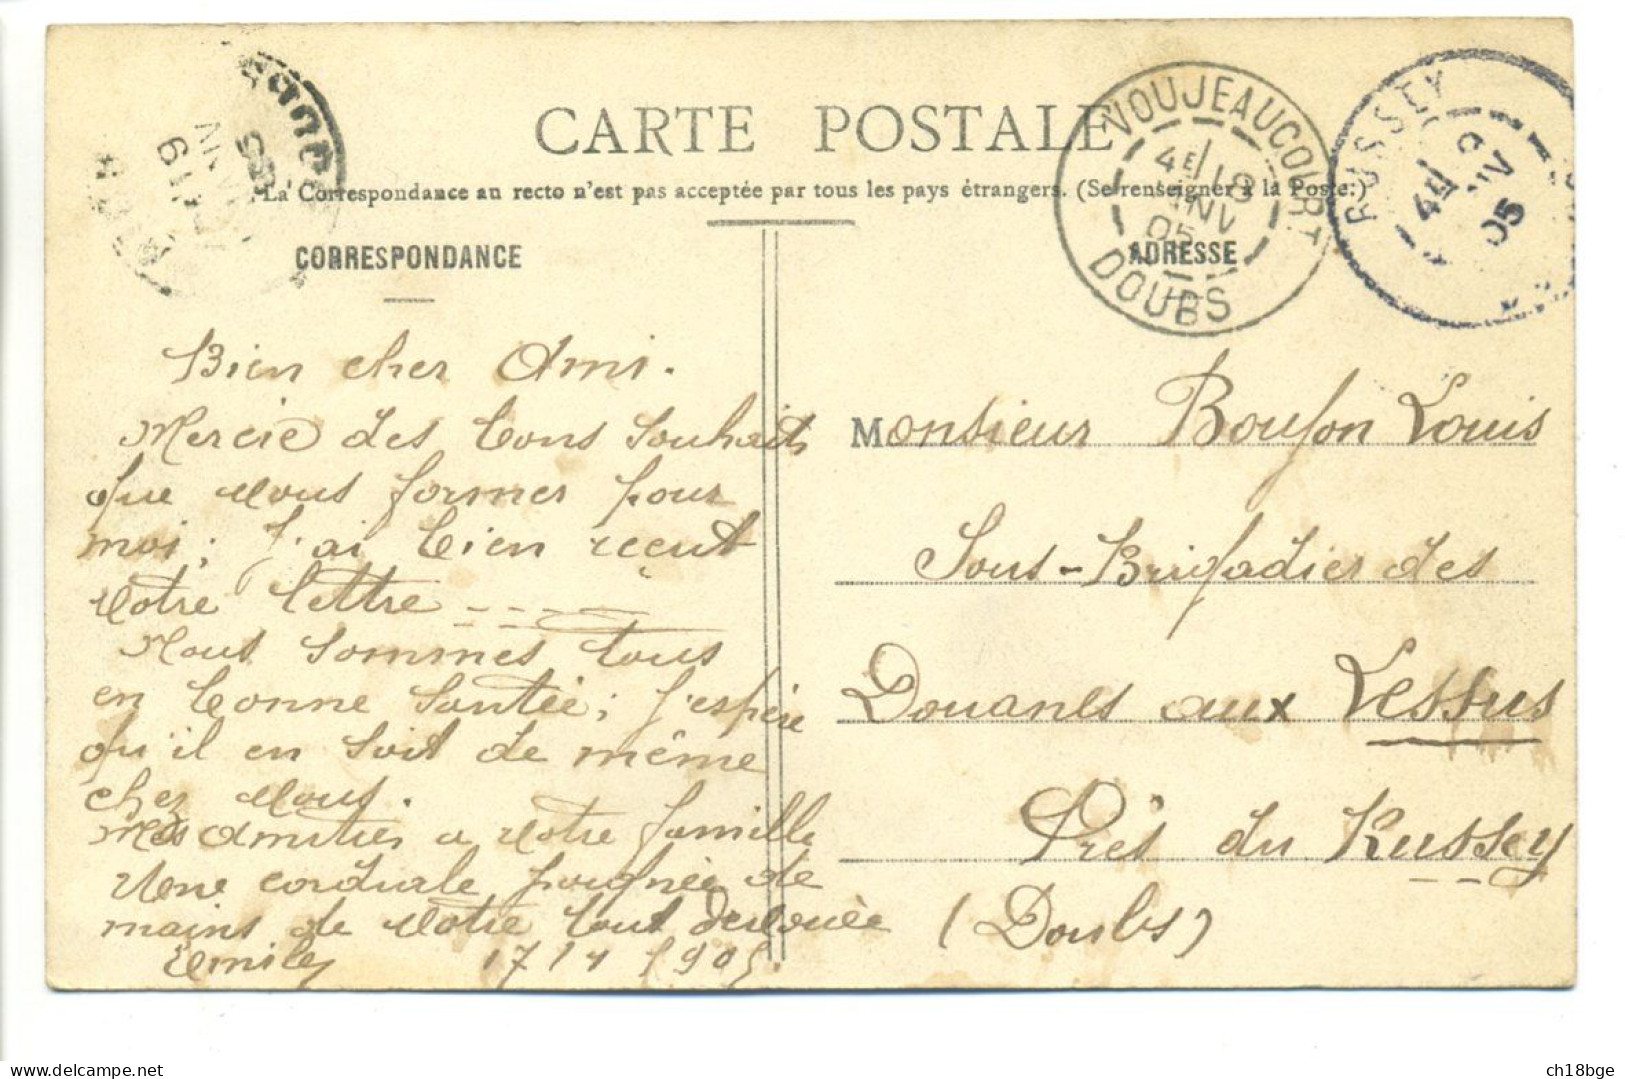 CARTE POSTALE
La Correspondance au recto n'est pas acceptée par tous les pays étrangers. (Se renseigner à la Poste.)
CORRESPONDANCE
Bien cher Ami.
Mercie des bons souhaits
que vous formes pour
moi; J'ai bien reçut
votre lettre
Nous sommes tous
en bonne Santée; J'espère
qu'il en soit de même
chez vous.
Mes Amitiés a votre famille
Une cordiale poignée de
mains de votre tout devouée
17 1905
ADRESSE
Monsieur Boufon Louis
Sous-Brigadier des
Douanes aux Lessus
Près du Russey
(Doubs)
VOUJEAUCOURT
4E 18
JANV
05
DOUBS
RUSSEY
4E
NV
05
ch18bge